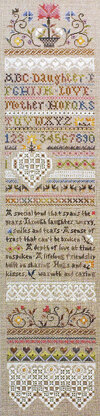 ABC Daughter E
FGHIJK LOVE
Mother Honors
TUVWXYZ
1234567890
A special bond that spans the
years. Through laughter, worry,
smiles and tears. A sense of
trust that can't be broken
A depth of love at times
unspoken A lifelong friendship
built on sharing Hugs and
kisses, warmth and caring